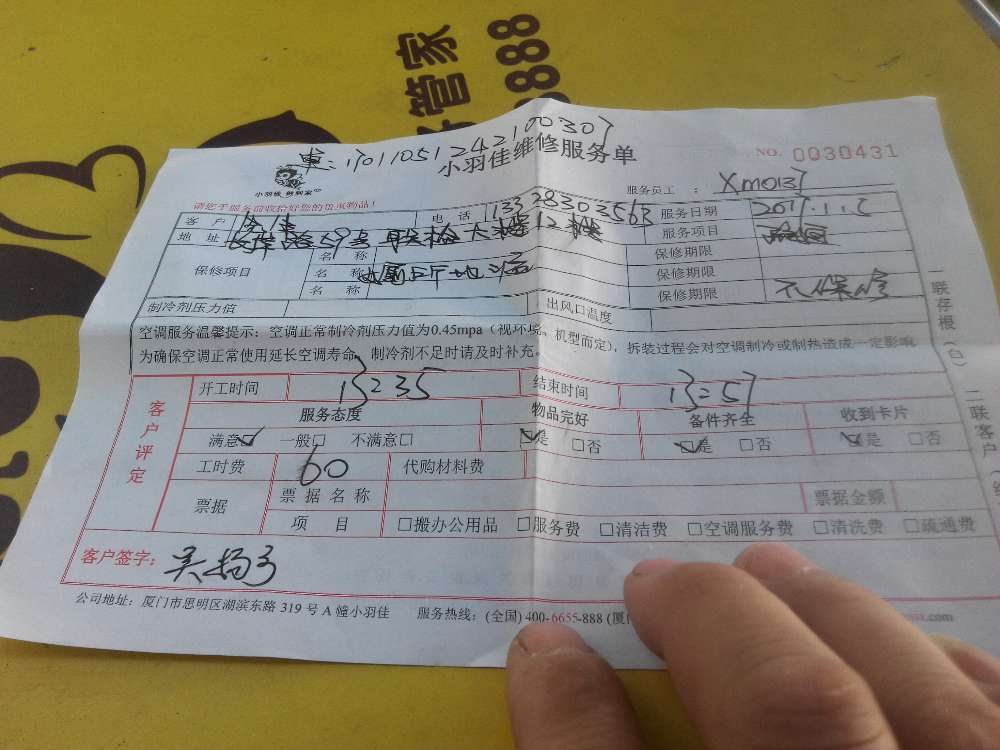 管家
888
单:17011051242100307
小羽佳维修服务单
NO. 0030431
小羽佳 好管家
服务员工 : XM0137
请把手服务前收拾好您的贵重物品!
客 户 电 话 服务日期 2017.1.5
地 址 服务项目
保修项目 名 称 保修期限
名 称 保修期限
名 称 保修期限 不保修
制冷剂压力值 出风口温度
空调服务温馨提示:空调正常制冷剂压力值为0.45mpa(视环境、机型而定),拆装过程会对空调制冷或制热造成一定影响
为确保空调正常使用延长空调寿命,制冷剂不足时请及时补充。
一联存根(白) 二联客户
客户评定
开工时间 13:35 结束时间 13:57
服务态度 物品完好 备件齐全 收到卡片
满意☑ 一般□ 不满意□ ☑是 □否 ☑是 □否 ☑是 □否
工时费 60 代购材料费
票据 票 据 名 称 票据金额
项 目 □搬办公用品 □服务费 □清洁费 □空调服务费 □清洗费 □疏通费
客户签字:
公司地址:厦门市思明区湖滨东路 319 号 A 幢小羽佳 服务热线:(全国) 400-6655-888 (厦门 .com